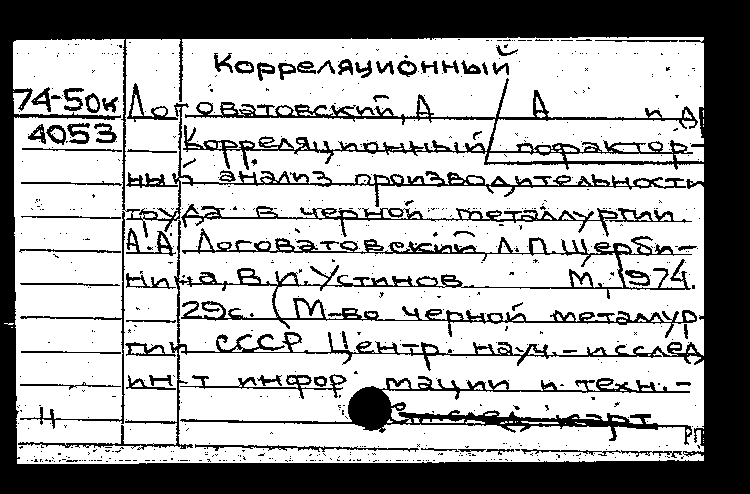 Корреляционный
74-50к Логоватовский, А А и др
4053 Корреляционный пофактор-
ный анализ производительности
труда в черной металлургии.
А.А. Логоватовский, Л.П. Щерби-
нина, В.И. Устинов М., 1974.
29с. (М-во черной металлур-
гии СССР. Центр. науч.-исслед
ин-т информации и техн.-
11
РП